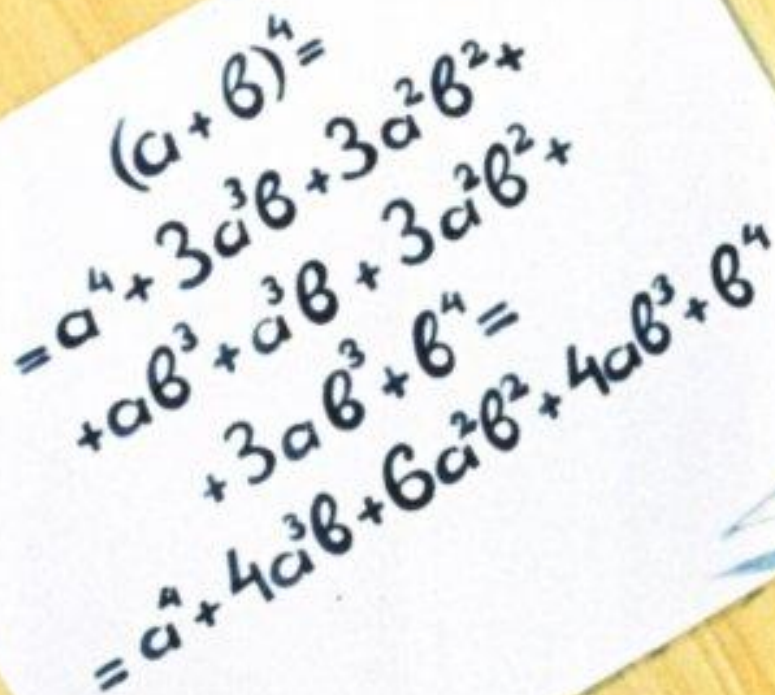 (a+b)⁴=
=a⁴+3a³b+3a²b²+
+ab³+a³b+3a²b²+
+3ab³+b⁴=
=a⁴+4a³b+6a²b²+4ab³+b⁴